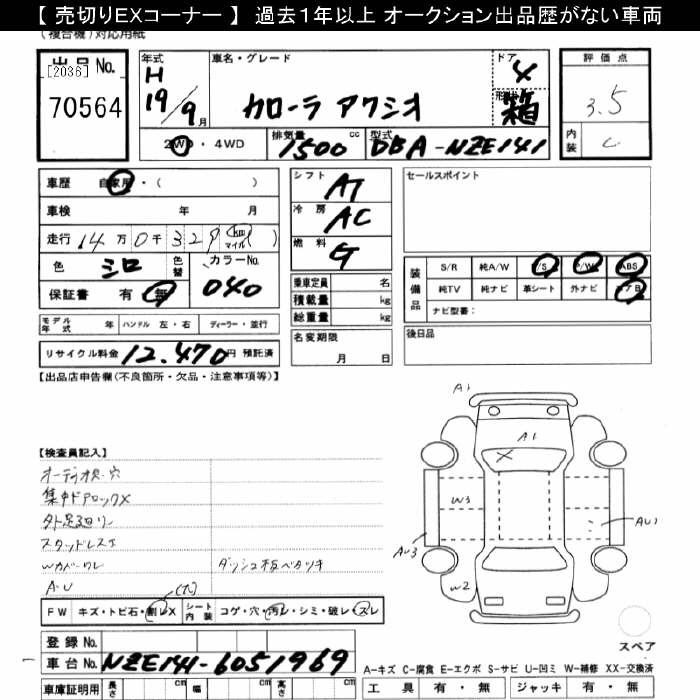 【 売切りEXコーナー 】 過去1年以上 オークション出品歴がない車両
(複合機)対応用紙
出品No.
[2036]
70564
年式
H
19/9月
車名・グレード
カローラ アクシオ
ドア
4
形状
箱
評価点
3.5
内装
C
2WD・4WD
排気量
1500 cc
型式
DBA-NZE141
車歴 自家用・( )
車検 年 月
走行 14万0千329 km マイル ( )
色 シロ 色替 カラーNo. 040
保証書 有・無
シフト AT
冷房 AC
燃料 G
乗車定員 名
積載量 kg
総重量 kg
名変期限 月 日
セールスポイント
装備品
S/R 純A/W P/S P/W ABS
純TV 純ナビ 革シート 外ナビ エアB
ナビ型番:
後日品
モデル年式 年 ハンドル 左・右 ディーラー・並行
リサイクル料金 12.470円 預託済
【出品店申告欄(不良箇所・欠品・注意事項等)】
【検査員記入】
オーディオ欠.穴
集中ドアロックX
外足廻り
スタッドレス
Wカバーワレ
ダッシュ板ベタツキ
A・U
(大)
FW キズ・トビ石・割レX シート内装 コゲ・穴・汚レ・シミ・破レ・スレ
登録No.
車台No. NZE141-6051969
車庫証明用 長さ cm 幅 cm 高さ cm
A1
A1
W3
AU3
AU1
W2
スペア
A-キズ C-腐食 E-エクボ S-サビ U-凹ミ W-補修 XX-交換済
工具 有・無 ジャッキ 有・無